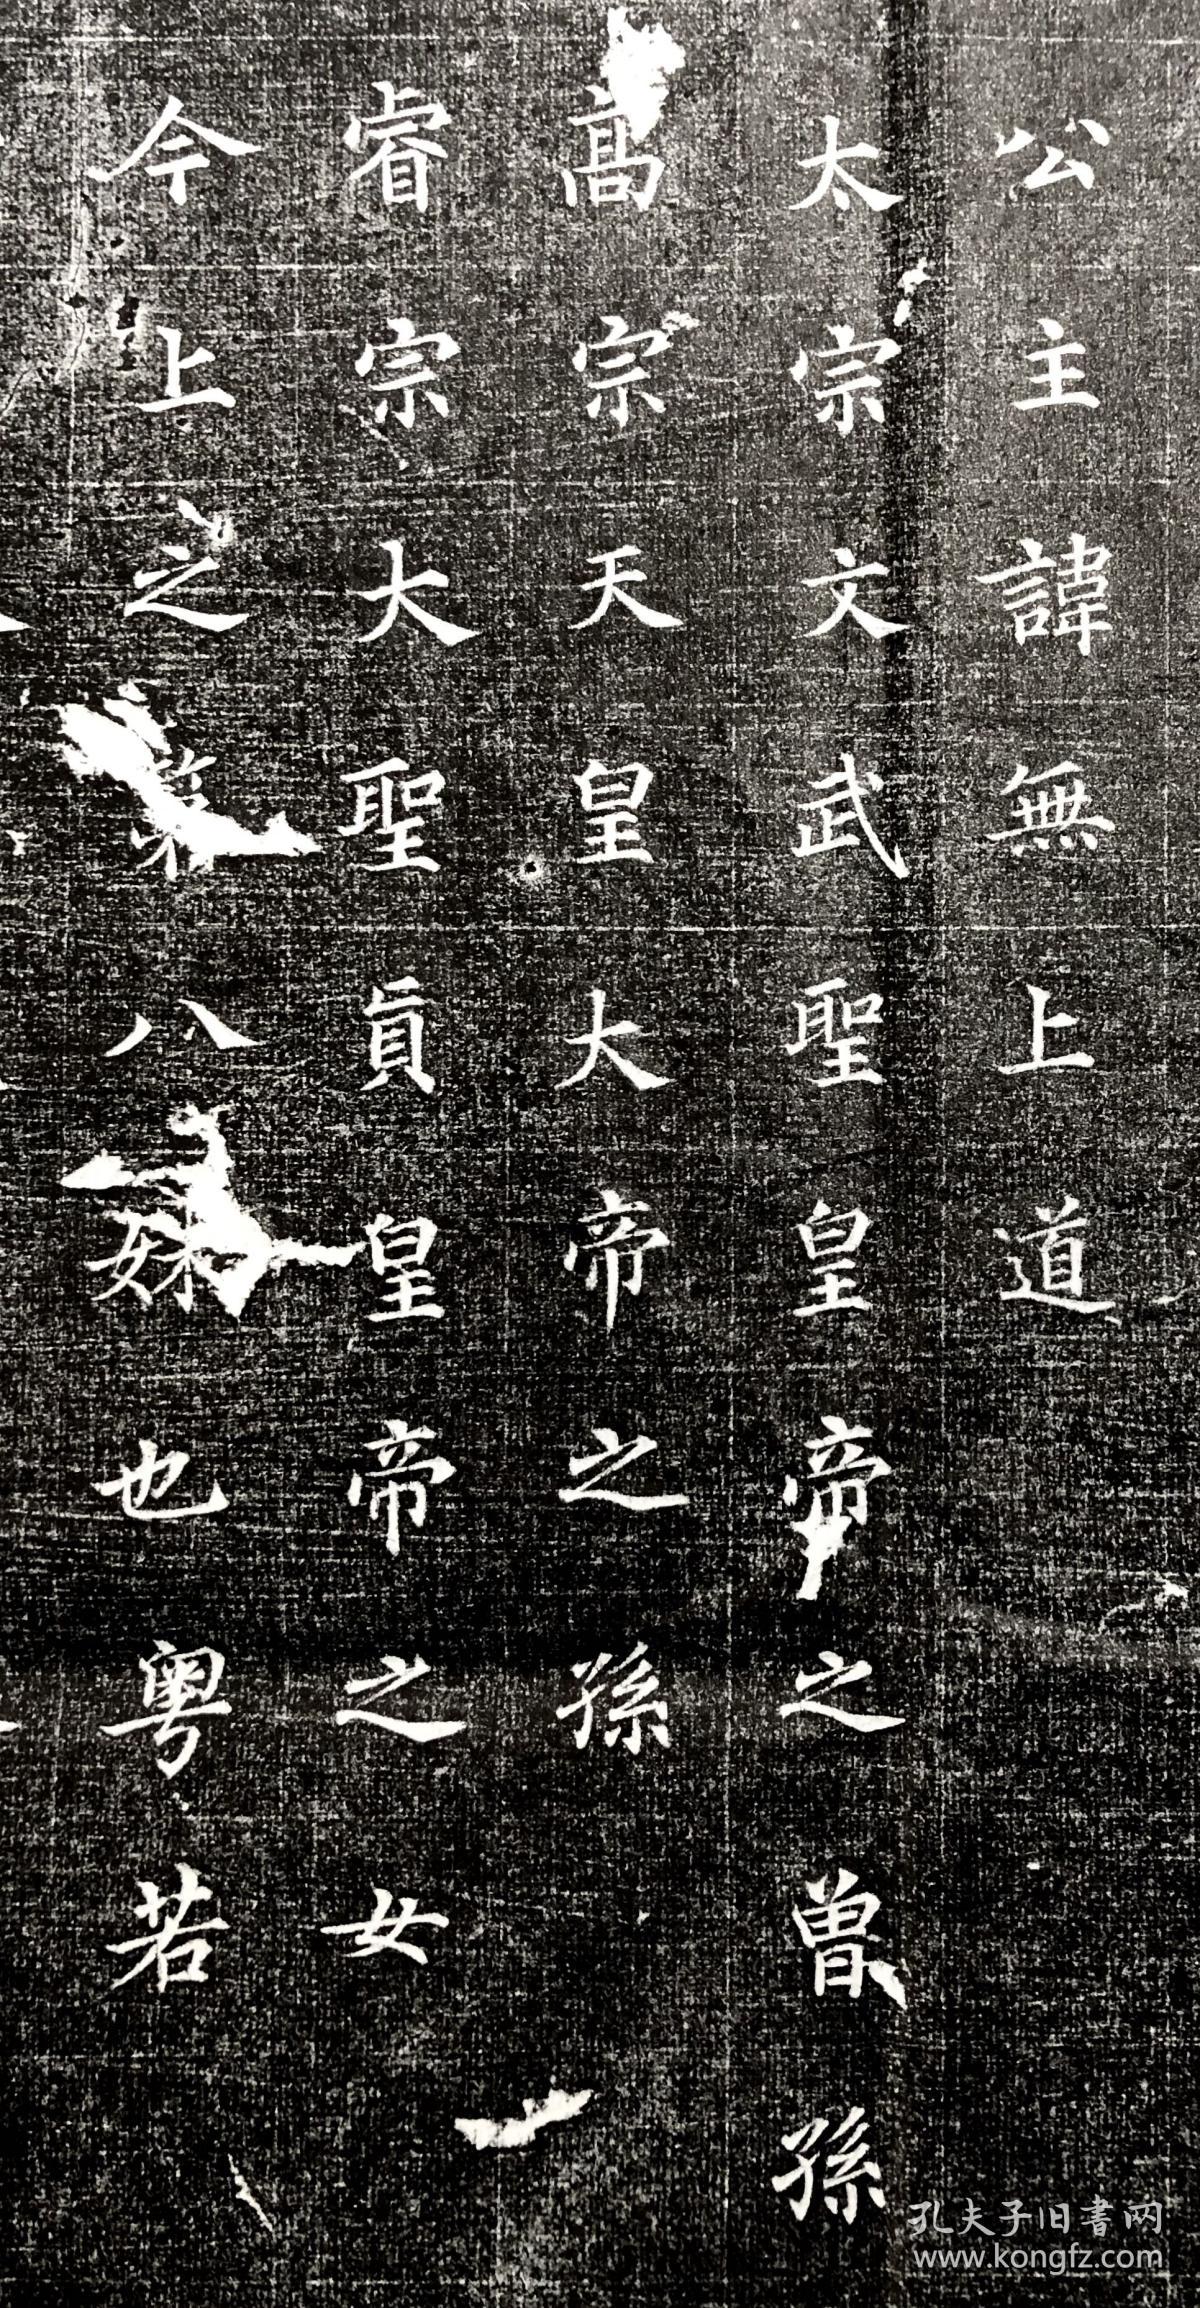 公主諱無上道
太宗文武聖皇帝之曾孫
高宗天皇大帝之孫
睿宗大聖真皇帝之女
今上之第八妹也粵若
孔夫子旧書网
www.kongfz.com